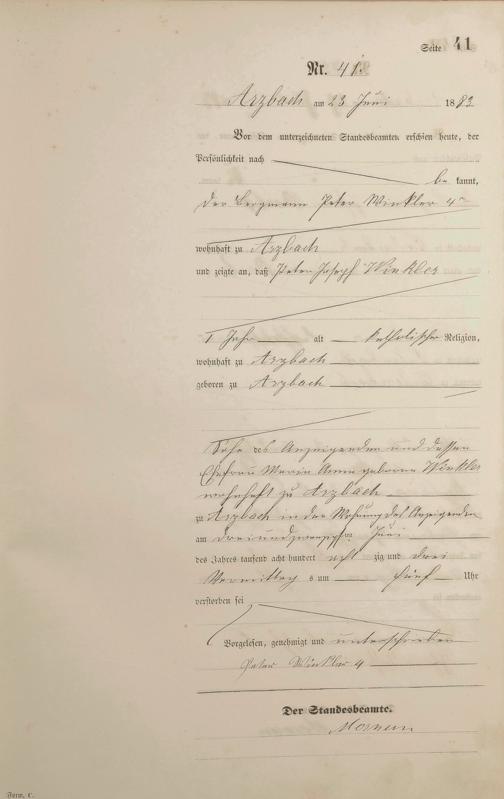 Seite 41
Nr. 41.
Arzbach am 23 Juni 1883
Vor dem unterzeichneten Standesbeamten erschien heute, der
Persönlichkeit nach
be kannt,
der Bergmann Peter Winkler 4
wohnhaft zu Arzbach
und zeigte an, daß Peter Joseph Winkler
1 Jahr alt katholischer Religion,
wohnhaft zu Arzbach
geboren zu Arzbach
Sohn des Anzeigenden und dessen
Ehefrau Maria Anna geborene Winkler
wohnhaft zu Arzbach
zu Arzbach in der Wohnung des Anzeigenden
am dreiundzwanzigsten Juni
des Jahres tausend acht hundert acht zig und drei
Vormittag s um fünf Uhr
verstorben sei
Vorgelesen, genehmigt und unterschrieben
Peter Winkler 4
Der Standesbeamte.
Form. C.